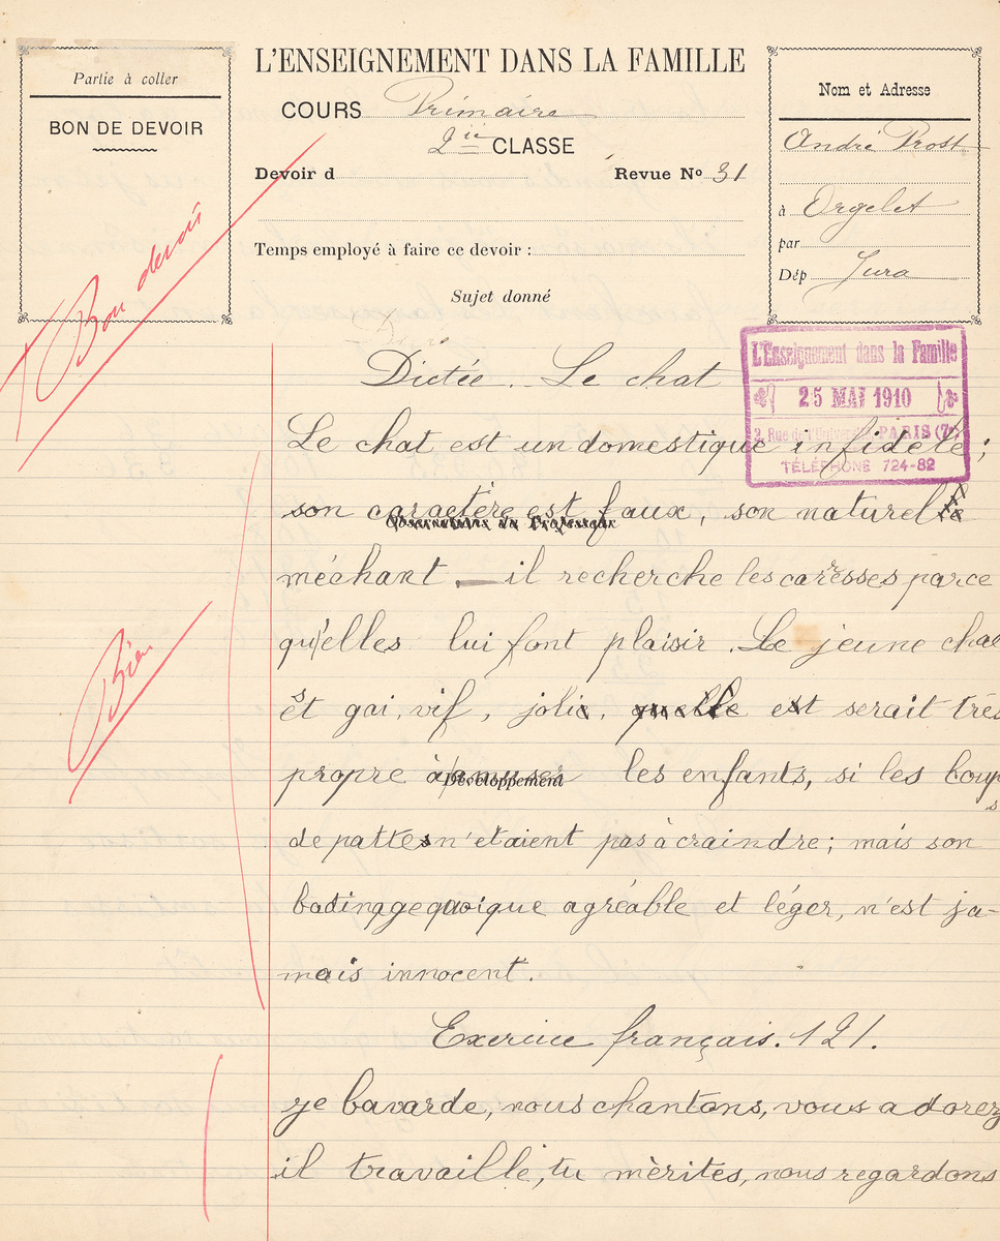 Partie à coller
BON DE DEVOIR
L'ENSEIGNEMENT DANS LA FAMILLE
COURS Primaire
2ie CLASSE
Devoir d
Revue No 31
Temps employé à faire ce devoir :
Sujet donné
Nom et Adresse
André Prost
à Orgelet
par
Dép Jura
Bon devoir
L'Enseignement dans la Famille
25 MAI 1910
2, Rue de l'Université, PARIS (7e)
TÉLÉPHONE 724-82
Dictée. Le chat
Le chat est un domestique infidèle ;
son caractère est faux, son naturel
Observations du Professeur
méchant. — il recherche les caresses parce
qu'elles lui font plaisir. Le jeune chat
est gai, vif, joli, quelle et serait très
Bien
propre à amuser les enfants, si les coups
Développement
de pattes n'etaient pas à craindre ; mais son
badinage quoique agréable et léger, n'est ja-
mais innocent.
Exercice français. 121.
je bavarde, nous chantons, vous adorez
il travaille, tu mèrites, nous regardons